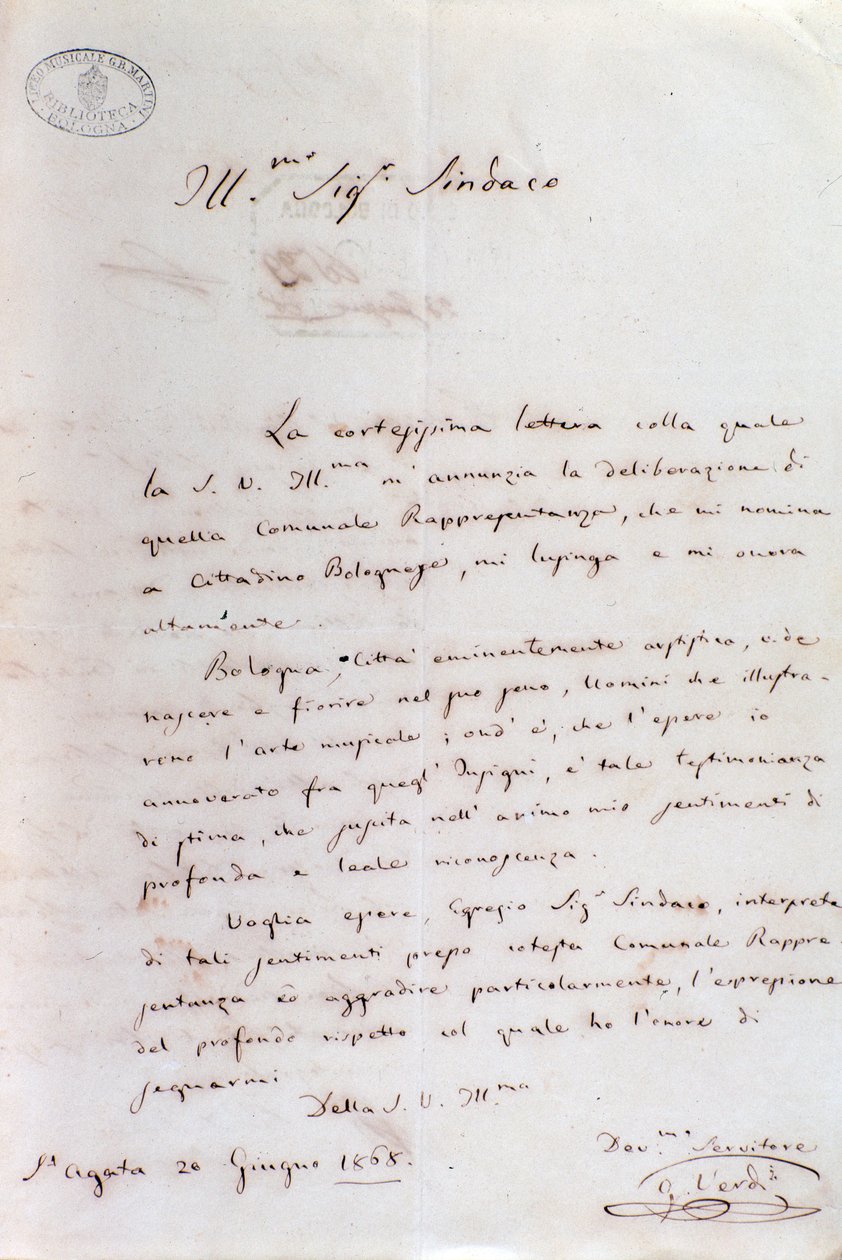 LICEO MUSICALE G.B. MARTINI
BIBLIOTECA
BOLOGNA
Ill.mo Sigr. Sindaco
La cortesissima lettera colla quale
la S. V. Ill.ma m'annunzia la deliberazione di
quella Comunale Rappresentanza, che mi nomina
a Cittadino Bolognese, mi lusinga e mi onora
altamente.
Bologna, Città eminentemente artistica, vide
nascere e fiorire nel suo seno, Uomini che illustra-
rono l'arte musicale; ond'è, che l'essere io
annoverato fra quegl'Insigni, è tale testimonianza
di stima, che suscita nell'animo mio sentimenti di
profonda e leale riconoscenza.
Voglia essere, Egregio Sigr Sindaco, interprete
di tali sentimenti presso cotesta Comunale Rappre-
sentanza ed aggradire particolarmente, l'espressione
del profondo rispetto col quale ho l'onore di
segnarmi
Della S. V. Ill.ma
Dev.mo Servitore
G. Verdi
St Agata 20 Giugno 1868.